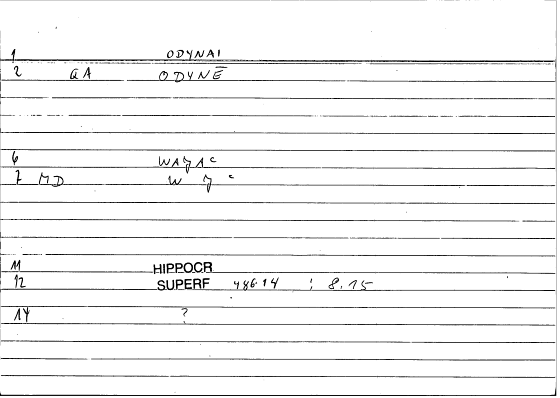 1 ODYNAI
2 GA ODYNĒ
6 WAGAʿ
7 MD W G ʿ
11 HIPPOCR
12 SUPERF 486.14 ; 8.15
14 ?